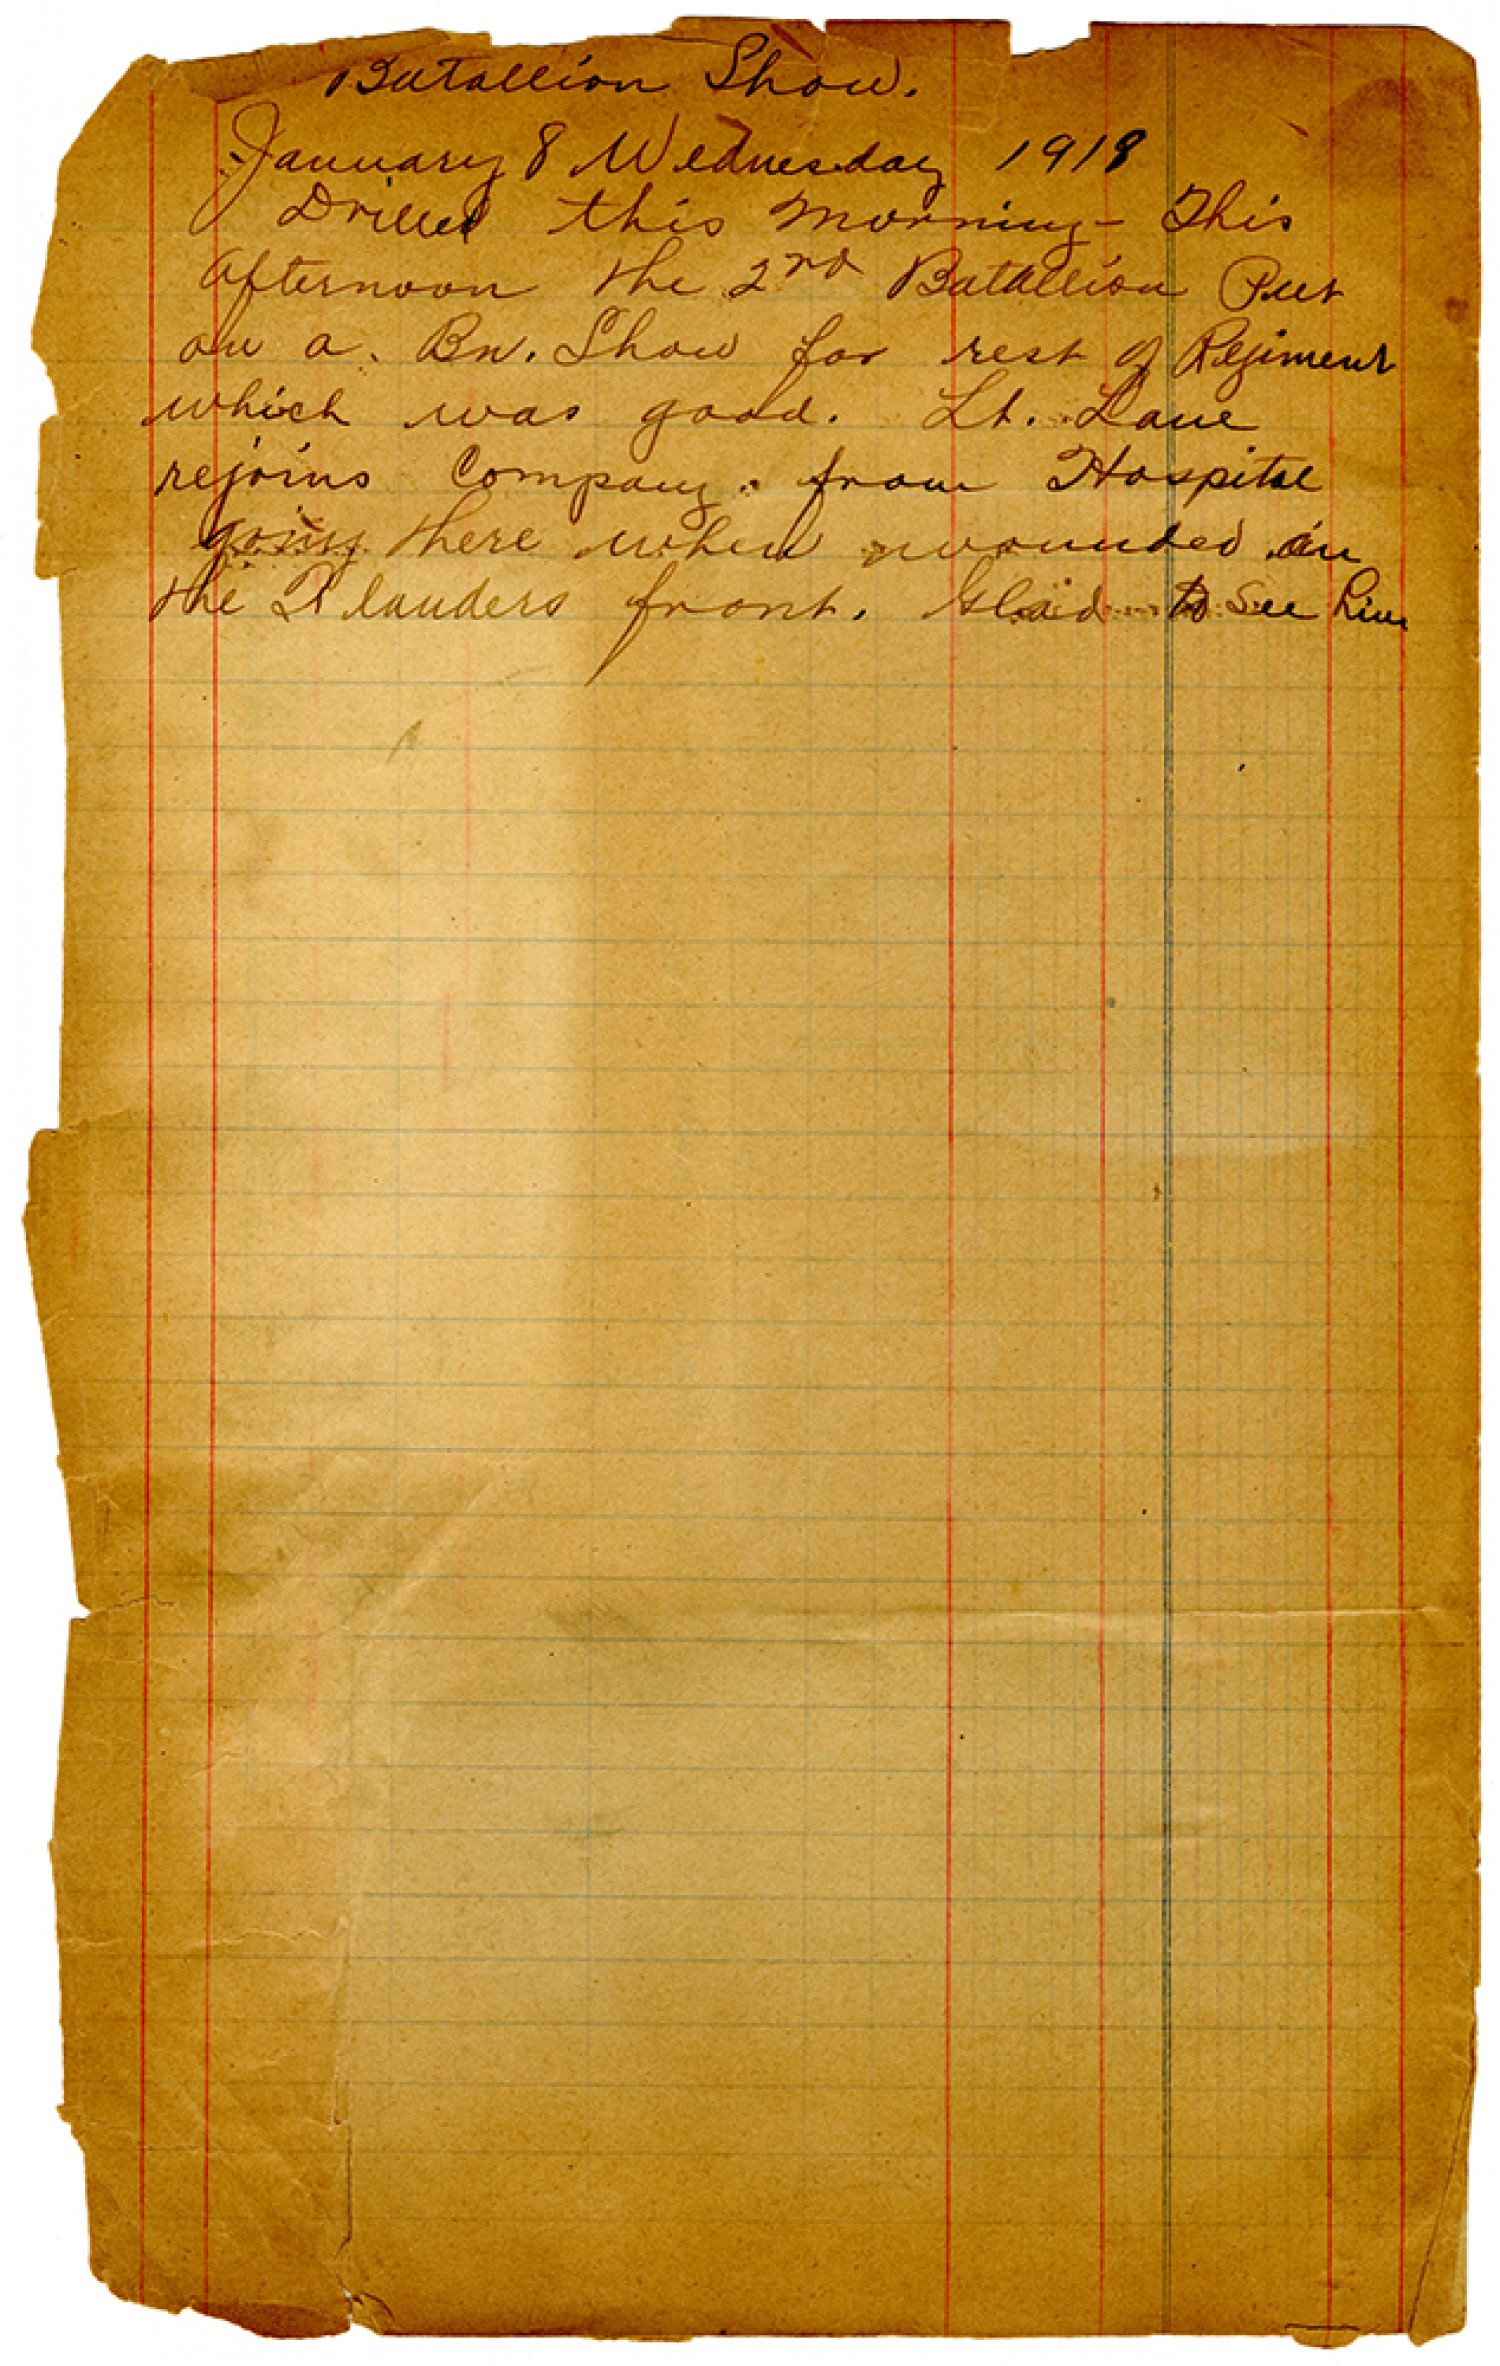 Batallion Show.
January 8 Wednesday 1918
Drilled this Morning - This
afternoon the 2nd Batallion Put
on a. Bn. Show for rest of Regiment
which was good. Lt. Lane
rejoins Company. from Hospital
going there when wounded on
the Flanders front. Glad to see him